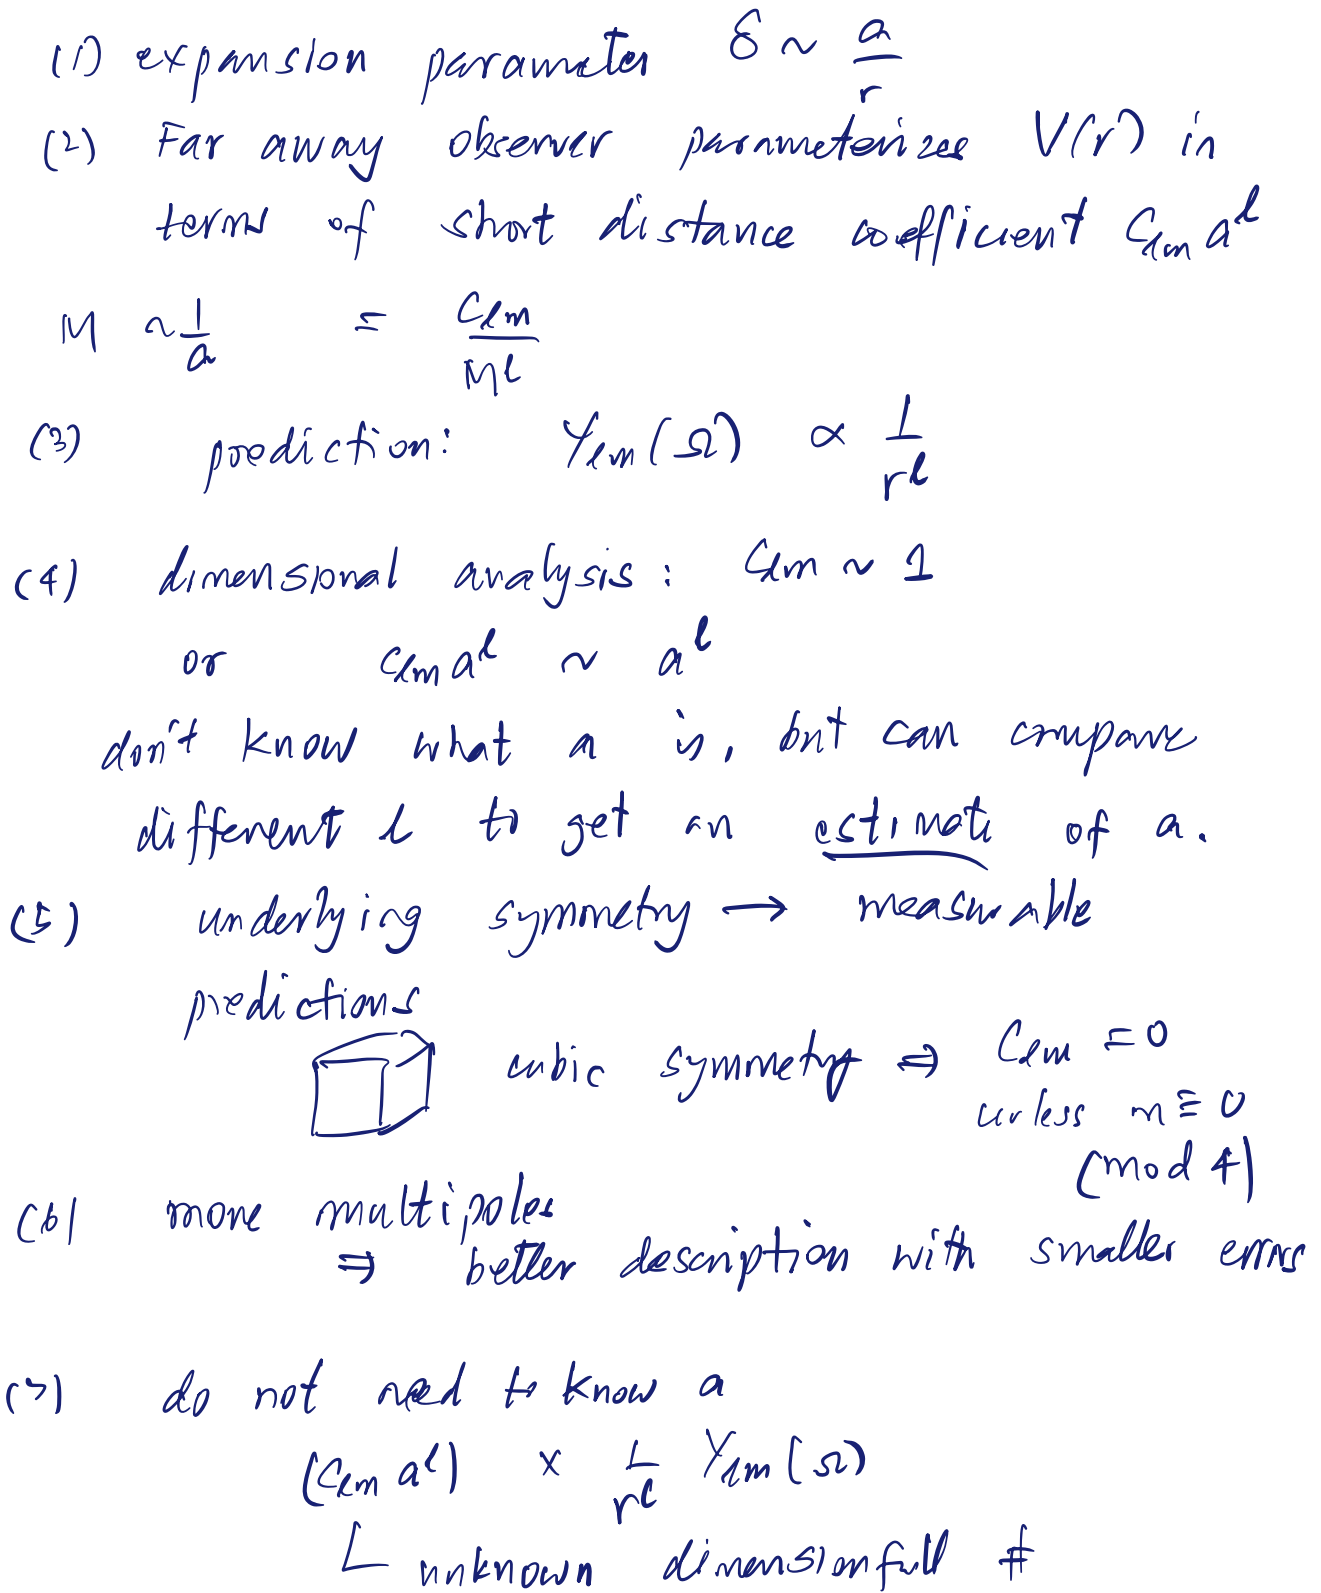 (1) expansion parameter δ ~ a/r
(2) Far away observer parameterizes V(r) in
terms of short distance coefficient Cₗₘ aˡ
M ~ 1/a = Cₗₘ/Mˡ
(3) prediction: Yₗₘ(Ω) ∝ 1/rˡ
(4) dimensional analysis: Cₗₘ ~ 1
or Cₗₘ aˡ ~ aˡ
don't know what a is, but can compare
different l to get an estimate of a.
(5) underlying symmetry → measurable
predictions
cubic symmetry ⇒ Cₗₘ = 0
unless m ≡ 0
(mod 4)
(6) more multipoles
⇒ better description with smaller errors
(7) do not need to know a
(Cₗₘ aˡ) × 1/rˡ Yₗₘ(Ω)
unknown dimensionfull #